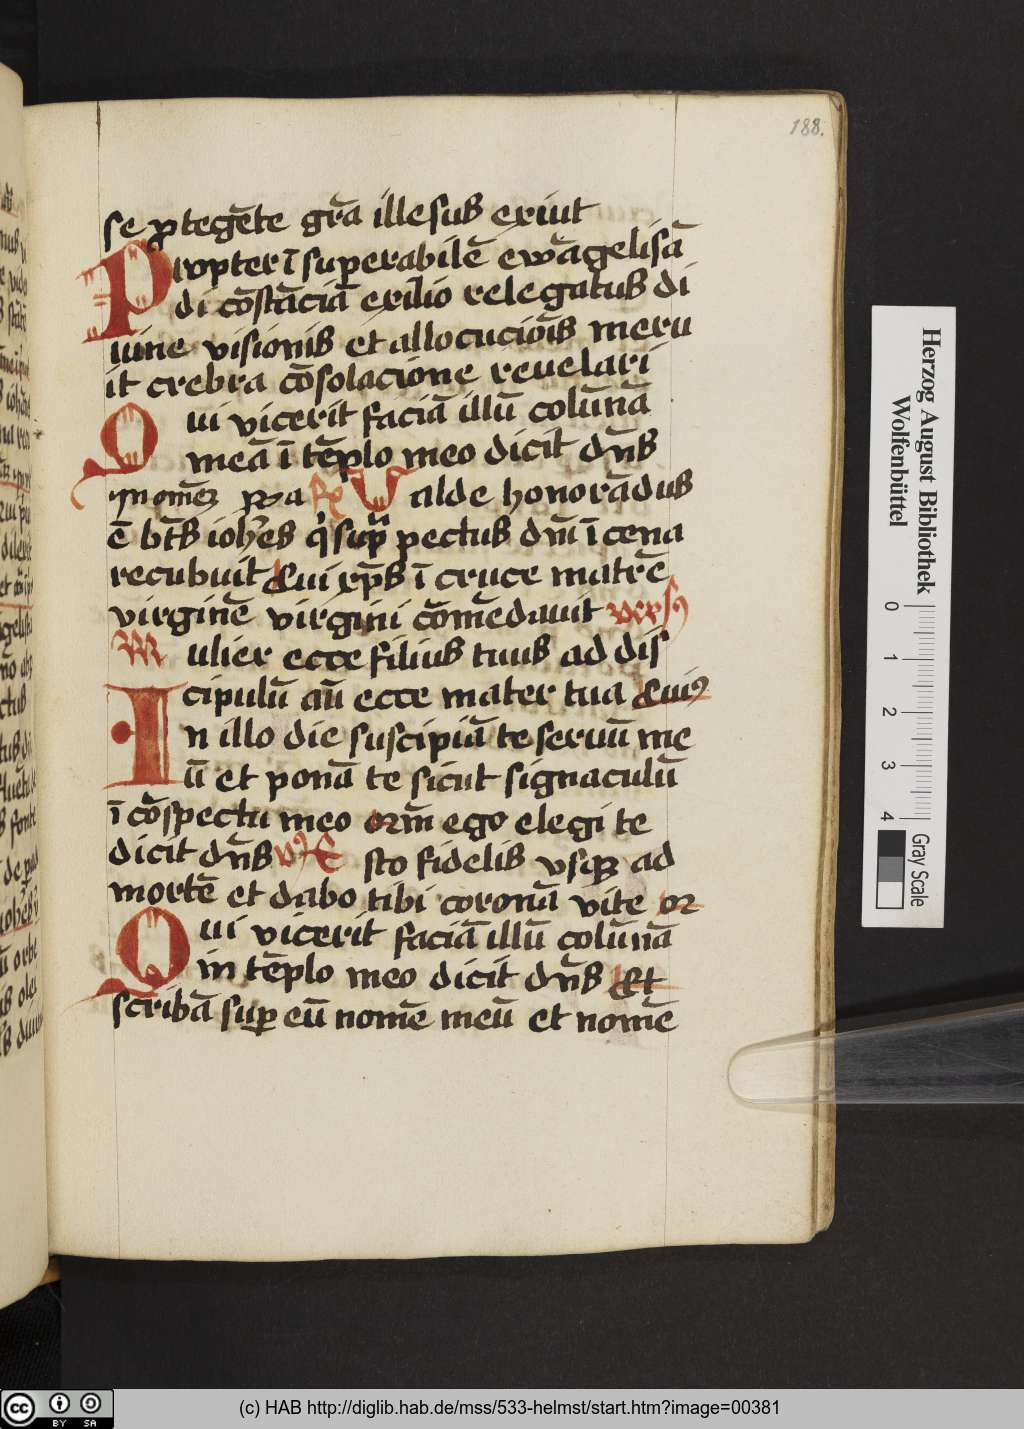 188.
se ꝓtegēte gr̄a illesus exiuit
Propter ī suꝑabilē ewāgelisā
di cōstāciā exilio relegatus di
uine visionis et allocucōis meru
it crebra cōsolacione reuelari
Qui vicerit faciā illū colūnā
meā ī tēplo meo dicit dn̄s
Valde honorādus
ē bt̄s ioh̄es qͥ supᷓ pectus dn̄i ī cena
recubuit Cui xp̄s ī cruce matrē
virginē virgini cōmēdauit versꝰ
Mulier ecce filius tuus ad dis
cipulū aū ecce mater tua Cuiꝰ
In illo die suscipiā te seruū me
ū et ponā te sicut signaculū
ī cōspectu meo qm̄ ego elegi te
dicit dn̄s vꝰ Esto fidelis vsqꝫ ad
mortē et dabo tibi coronā vite
Qui vicerit faciā illū colūnā
in tēplo meo dicit dn̄s Et
scribā suꝑ eū nomē meū et nomē
Herzog August Bibliothek
Wolfenbüttel
0 1 2 3 4
Gray Scale
(c) HAB http://diglib.hab.de/mss/533-helmst/start.htm?image=00381
cc BY SA